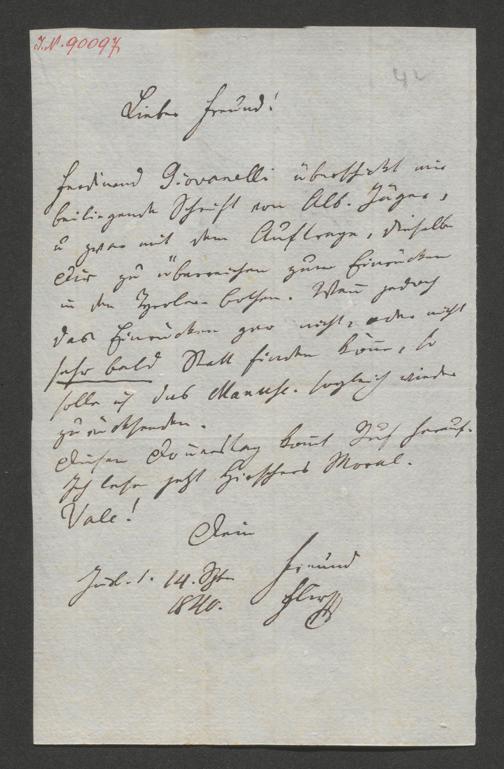 J.N. 90097
42
Lieber Freund!
Ferdinand Giovanelli überschickt mir
beiliegende Schrift von Alb. Jäger,
u zwar mit dem Auftrage, dieselbe
Dir zu überreichen zum Einrücken
in den Tyroler bothen. Wenn jedoch
das Einrücken gar nicht, oder nicht
sehr bald Statt finden könne, so
solle ich das Manusc. sogleich wieder
zurücksenden.
Diesen Donnerstag komt herauf.
Ich lese jetzt Hirschers Moral.
Vale!
Dein
Freund
14. Spt
1840.